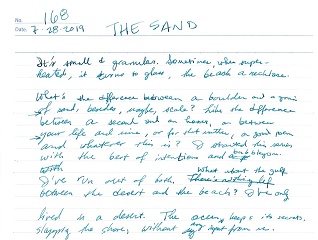 No. 168
Date 7-28-2019 THE SAND
It's small & granular. Sometimes, when super-
heated, it turns to glass, the beach a necklace.
What's the difference between a boulder and a grain
of sand, besides, maybe, scale? Like the difference
between a second and an hour, or between
your life and mine, or for that matter, a good poem
and whatever this is? I started this series
with the best of intentions and a
with What about the gulf
I've run out of both. There's nothing left
between the desert and the beach? I've only
lived in a desert. The ocean keeps its secrets,
slapping the shore, without any input from me.